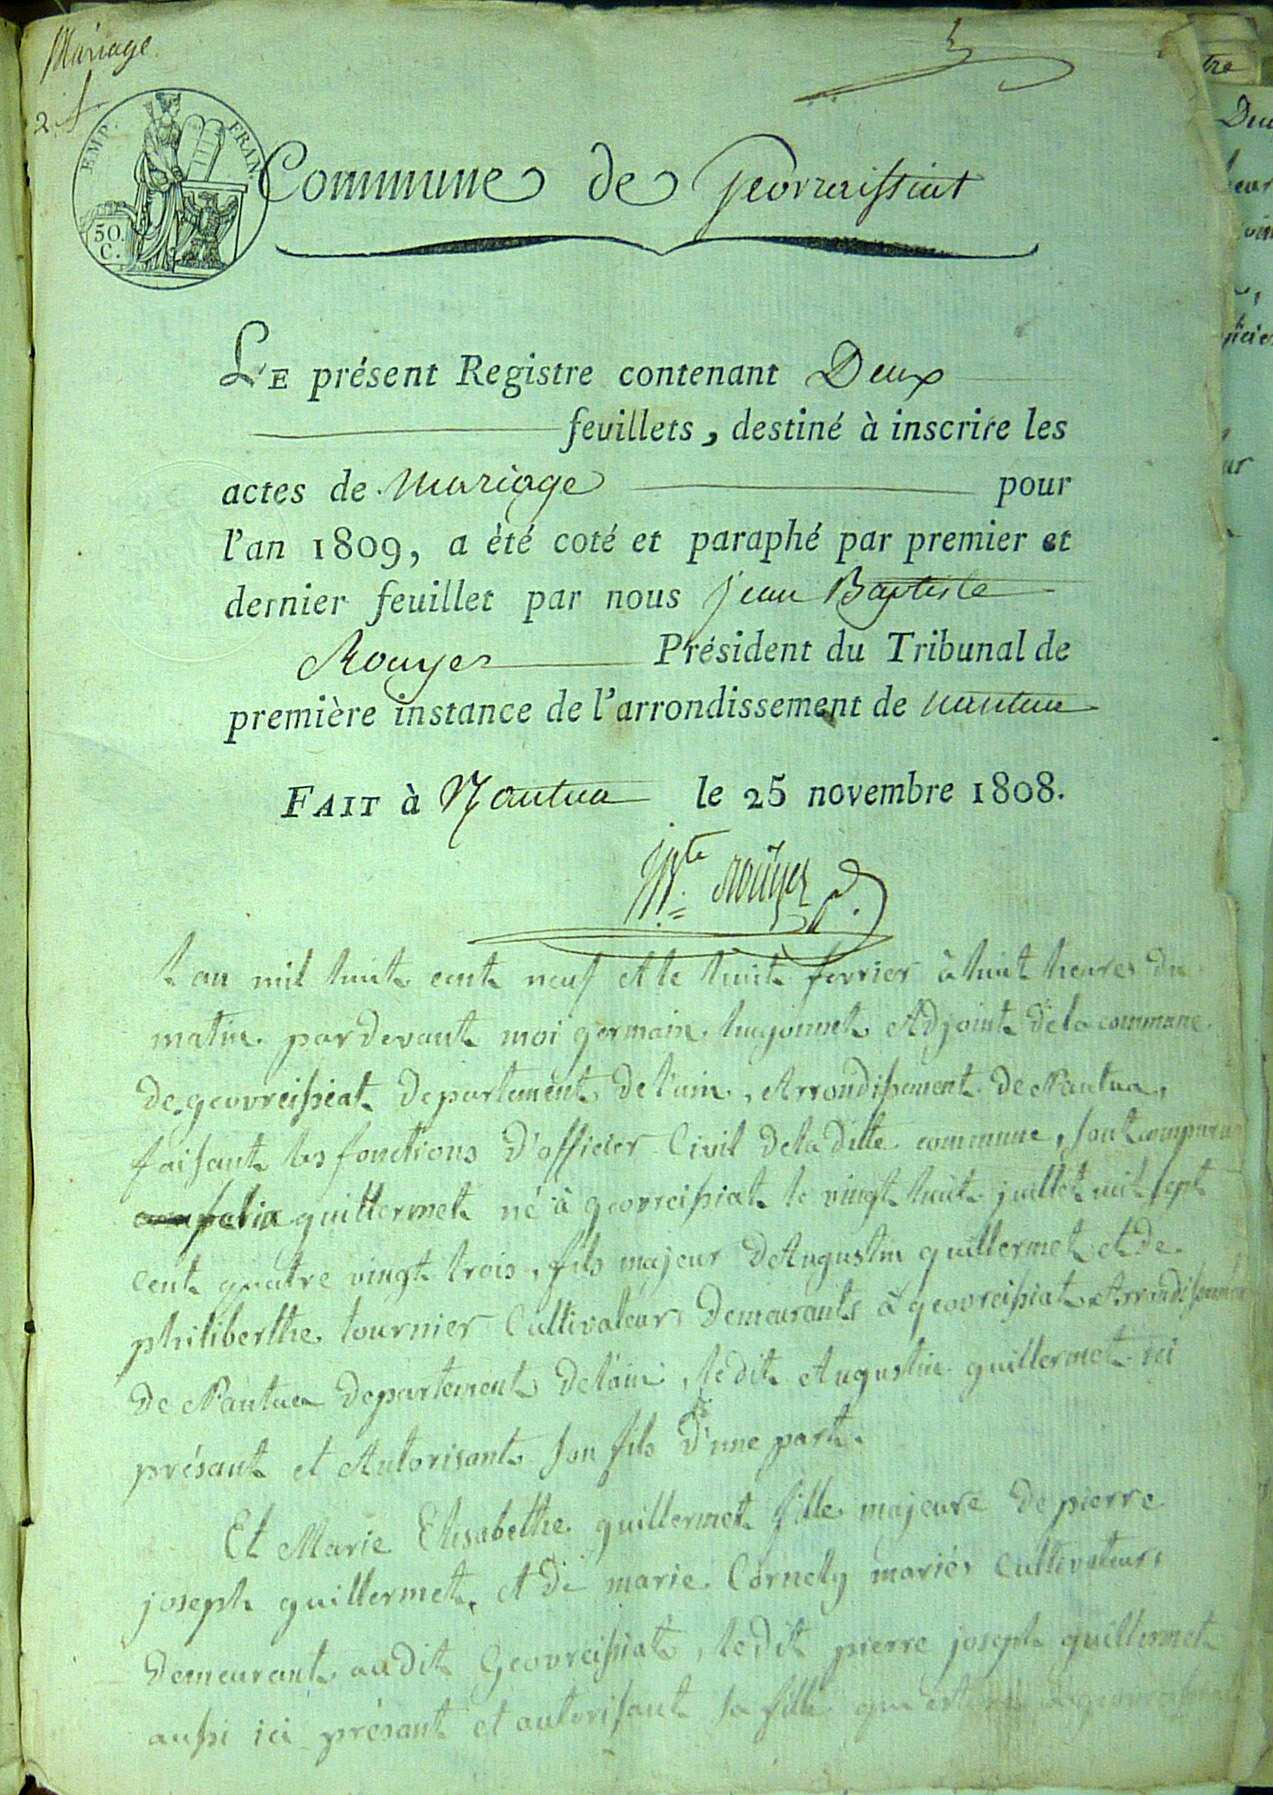 Mariage
2
EMP. FRAN.
50.
C.
Commune de Geovreissiat
LE présent Registre contenant Deux
feuillets, destiné à inscrire les
actes de Mariage pour
l'an 1809, a été coté et paraphé par premier et
dernier feuillet par nous jean Baptiste
Rouyer Président du Tribunal de
première instance de l'arrondissement de nantua
FAIT à Nantua le 25 novembre 1808.
Jn Bte Rouyer p.
L'an mil huit cent neuf et le huit fevrier à huit heures du
matin par devant moi germain hugonnet Adjoint de la commune
de geovreissiat Departement de l'ain, Arrondissement de Nantua,
faisant les fonctions D'officier Civil de la ditte commune, sont comparu
felix guillermet né à geovreissiat le vingt huit juillet mil sept
cent quatre vingt trois, fils majeur D'Augustin guillermet et de
philiberthe tournier Cultivateurs Demeurants à geovreissiat Arrondissement
De Nantua Departement de l'ain, le dit Augustin guillermet ici
présant et Autorisant son fils D'une part.
Et Marie Elisabethe guillermet fille majeure De pierre
joseph guillermet et De marie Cornelly mariés Cultivateurs
Demeurant audit Geovreissiat, le dit pierre joseph guillermet
aussi ici présant et autorisant sa fille qui est née a geovreissiat